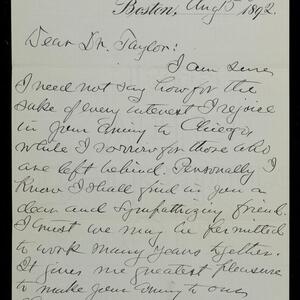 Boston, Aug 5 1892.
Dear Dr. Taylor:
I am sure
I need not say how for the
sake of every interest I rejoice
in your coming to Chicago
while I sorrow for those who
are left behind. Personally I
know I shall find in you a
dear and sympathizing friend.
I trust we may be permitted
to work many years together.
It gives me greatest pleasure
to make your coming to our